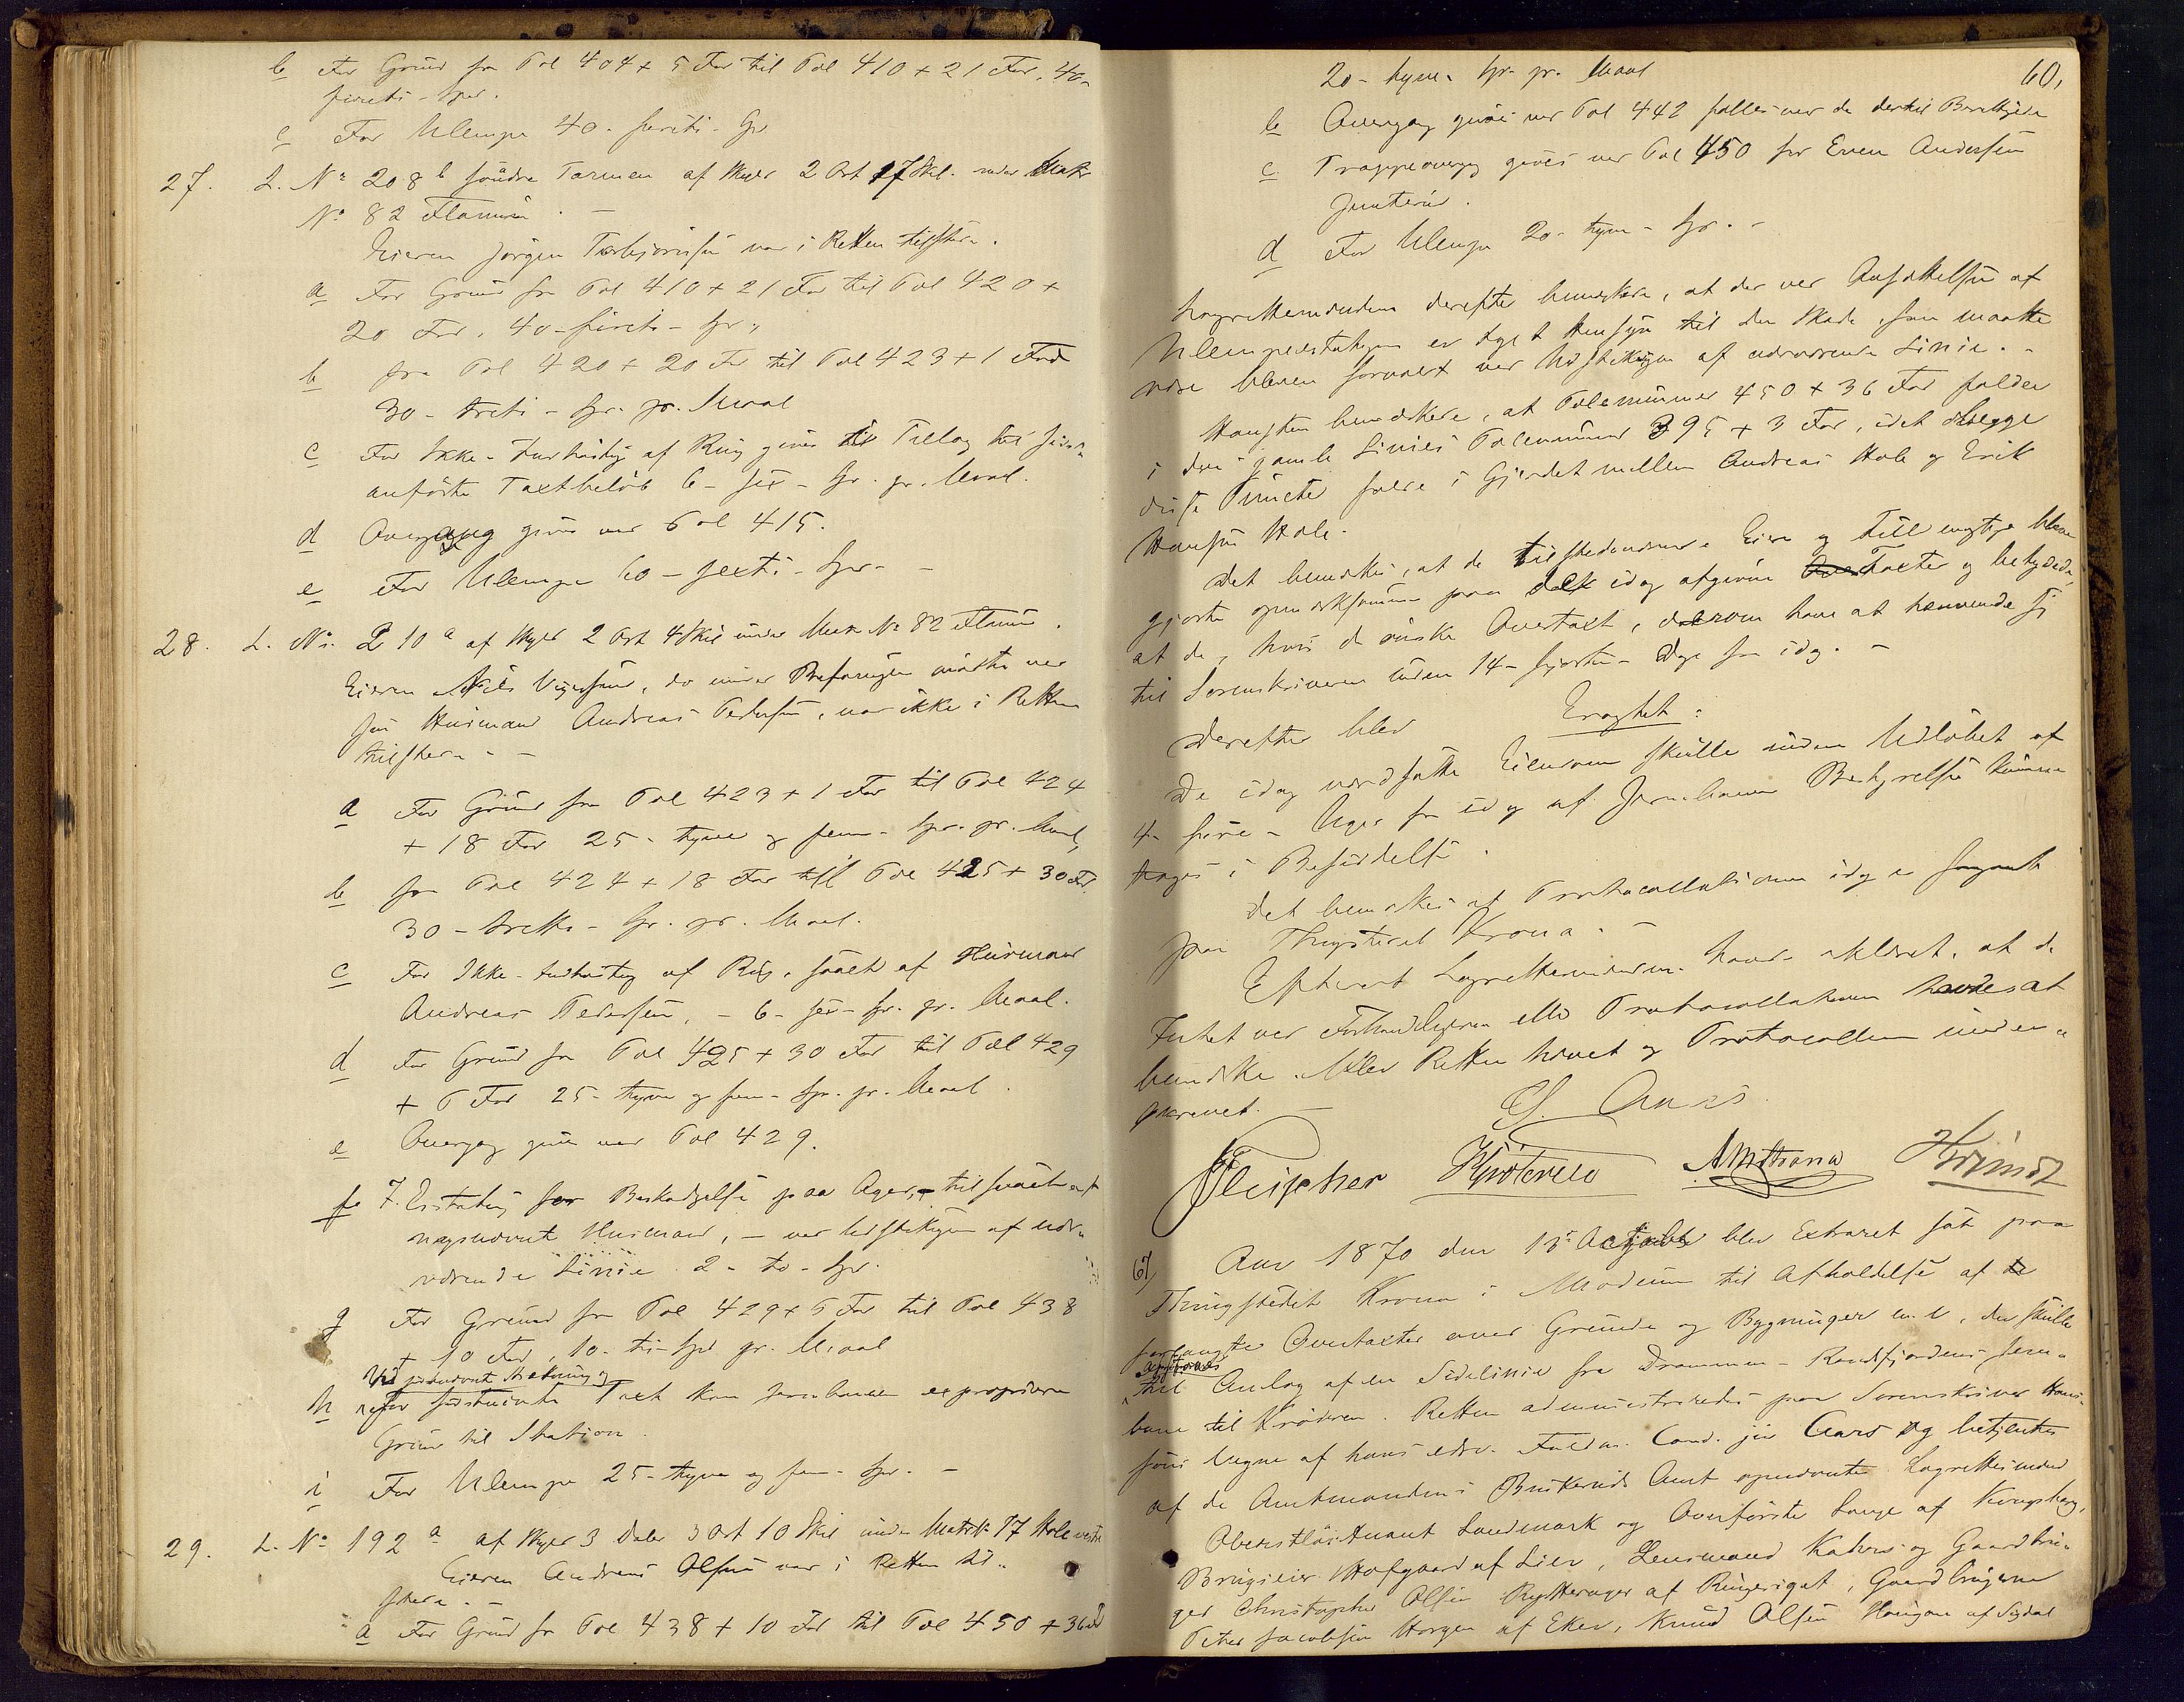 b For Grund fra Pæl 404 + 5 Fod til Pæl 410 + 21 Fod, 40-
fireti - Spd.
c For Ulempe 40 - firti - Sp.
27. L. No 208 b søndre Tørmen af Skyld 2 Ort 17 Skil. under Matr.
No 82 Flannum. -
Eieren Jørgen Torbjørnsen var i Retten tilstede.
a For Grund fra Pæl 410 + 21 Fod til Pæl 420 +
20 Fod, 40 - firti - Sp.
b fra Pæl 420 + 20 Fod til Pæl 423 + 1 Fod
30 - treti - Sp. pr. Maal
c For Ikke-Indhøstning af Rug gives til Tillæg til sidst
anførte Taxtbeløb 6 - sex - Sp. pr. Maal.
d Overgang gives ved Pæl 415.
e For Ulempe 60 - sexti - Spd. -
28. L. No. 210 a af Skyld 2 Ort 4 Skil under Matr. No 82
Eieren Nils, der under Befaringen mødte ved
sin Husmand Andreas Pedersen, var ikke i Retten
tilstede. -
a For Grund fra Pæl 423 + 1 Fod til Pæl 424
+ 18 Fod 25 - tyve og fem - Spd. pr. Maal,
b fra Pæl 424 + 18 Fod til Pæl 425 + 30 Fod
30 - tretti - Sp. pr. Maal.
c For Ikke-Indhøstning af Rug, saaet af Husmand
Andreas Pedersen, - 6 - sex - Sp. pr. Maal.
d For Grund fra Pæl 425 + 30 Fod til Pæl 429
+ 5 Fod 25 - tyve og fem - Sp. pr. Maal.
e Overgang gives ved Pæl 429.
f. I Erstatning for Beskadigelse paa Ager, tilsaaet af
nysnævnte Husmand, - ved Udstikningen af nu-
værende Linie 2 - to - Spd.
g For Grund fra Pæl 429 + 5 Fod til Pæl 438
+ 10 Fod, 10 - ti - Spd pr. Maal
Ved sidstnævnte Strækning og
h efter sidstnævnte Taxt kan Jernbanen expropriere
Grund til Station.
i For Ulempe 25 - tyve og fem - Spd. -
29. L. No 192 a af Skyld 3 Daler 3 Ort 10 Skil under Matr. No 77 Hole vestre
Eieren Andreas Olsen var i Retten til-
stede. -
a For Grund fra Pæl 438 + 10 Fod til Pæl 450 + 36 Fod
60.
20 - tyve - Sp. pr. Maal
b Overgang gives ved Pæl 442 fælles med de dertil Berettigede
c Trappeovergang gives ved Pæl 450 for Even Andersen
d For Ulempe 20 - tyve - Sp. -
Lagrettemændene derefter bemærkede, at der ved Ansættelsen af
Ulempeerstatningen er taget Hensyn til den Skade, som maatte
være bleven forvoldt ved Udstikningen af nuværende Linie. -
Hansten bemærkede, at Pælenummer 450 + 36 Fod falder
i den gamle Linies Pælenummer 395 + 3 Fod, idet begge
disse Puncter falde i Gjerdet mellem Andreas Hole og Erik
Hansen Hole.
Det bemærkes, at de tilstedeværende Eiere og Fuldmægtige bleve
gjorte opmærksomme paa de idag afgivne Taxter og betydede,
at de, hvis de ønske Overtaxt, derom have at henvende sig
til Sorenskriveren inden 14 - fjorten - Dage fra idag. -
Derefter blev Eragtet:
De idag værdsatte Eiendomme skulle inden Udløbet af
4 - fire - Uger fra idag af Jernbanens Bestyrelse kunne
tages i Besiddelse.
Det bemærkes at Protocollationen idag er foregaaet
paa Thingstedet Krona. -
Efterat Lagrettemændene havde erklæret, at de
Intet ved Forhandlingerne eller Protocollationen havde at
bemærke, blev Retten hævet og Protocollen under-
skrevet. -
Aars.
67, Aar 1870 den 15de October blev Extraret sat paa
Thingstedet Krona i Modum til Afholdelse af de
forlangte Overtaxter over Grunde og Bygninger m.v., der skulle
afstaaes
til Anlæg af en Sidelinie fra Drammen - Randsfjordens Jern-
bane til Krøderen. Retten administreredes paa Sorenskriver Han-
sens Vegne af hans edsv. Fuldm. Cand. jur. Aars og betjentes
af de Amtmanden i Buskeruds Amt opnævnte Lagrettesmænd
Oberstløitnant Landmark og Overførster Lange af Kongsberg,
Brugseier Hofgaard af Lier, Lensmand Kahrs og Gaardbru-
ger Christopher Olsen Rytterager af Ringeriget, Gaardbrugerne
Peter Jacobsen Horgen af Eker, Knud Olsen Haugan af Sigdal